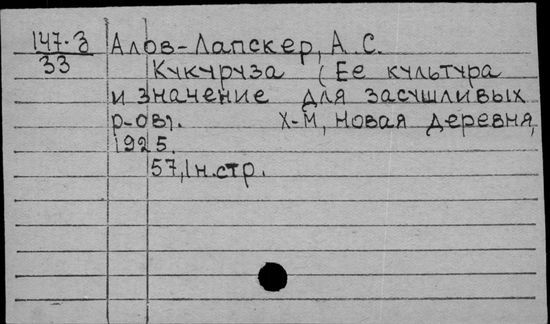 147-З Алов-Лапскер, А. С.
33
Кукуруза (Ее культура
и значение для засушливых
р-ов). Х-М, Новая деревня,
1925.
57,1н.стр.